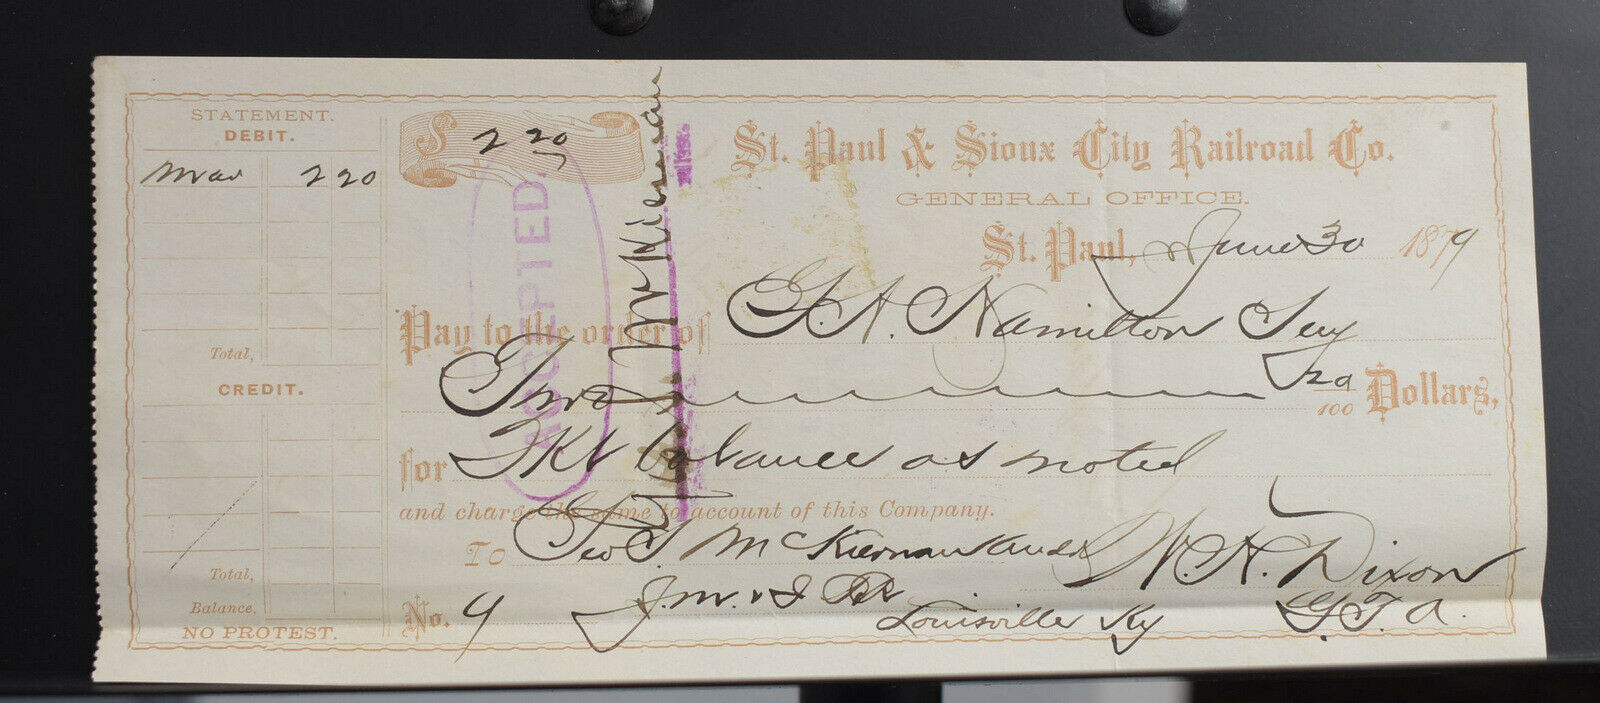 STATEMENT.
DEBIT.
Mar 2 20
Total,
CREDIT.
Total,
Balance,
NO PROTEST.
$ 2 20
St. Paul & Sioux City Railroad Co.
GENERAL OFFICE.
St. Paul, June 30 1879
Pay to the order of G. A. Hamilton
Two 20/100 Dollars,
for Tkt balance as noted
and charge the same to account of this Company.
To Geo S. McKiernan W. H. Dixon
No. 9 J. M. & I. RR Louisville Ky G. T. A.
ACCEPTED.
McKiernan